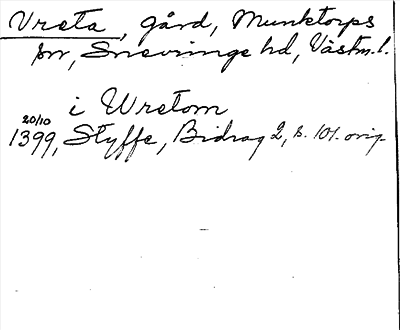 Vreta, gård, Munktorps
sn, Snevringe hd, Västm.l.
i Wretom
20/10
1399, Styffe, Bidrag 2, s. 101. orig.